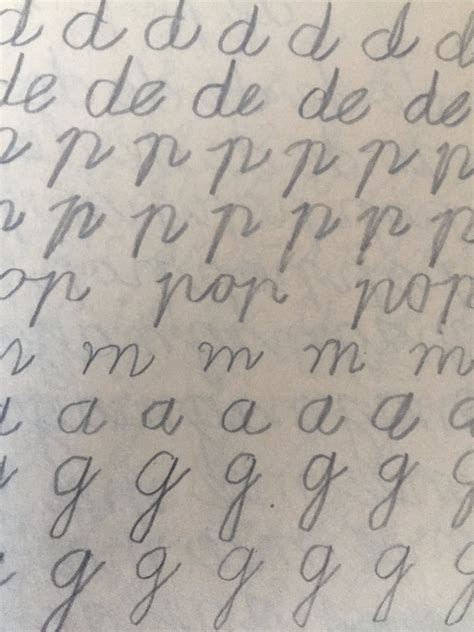 d d d d d d d
de de de de de
p p p p p p p
p p p p p p p
op pop pop
m m m m m
a a a a a a a
g g g g g g
g g g g g g